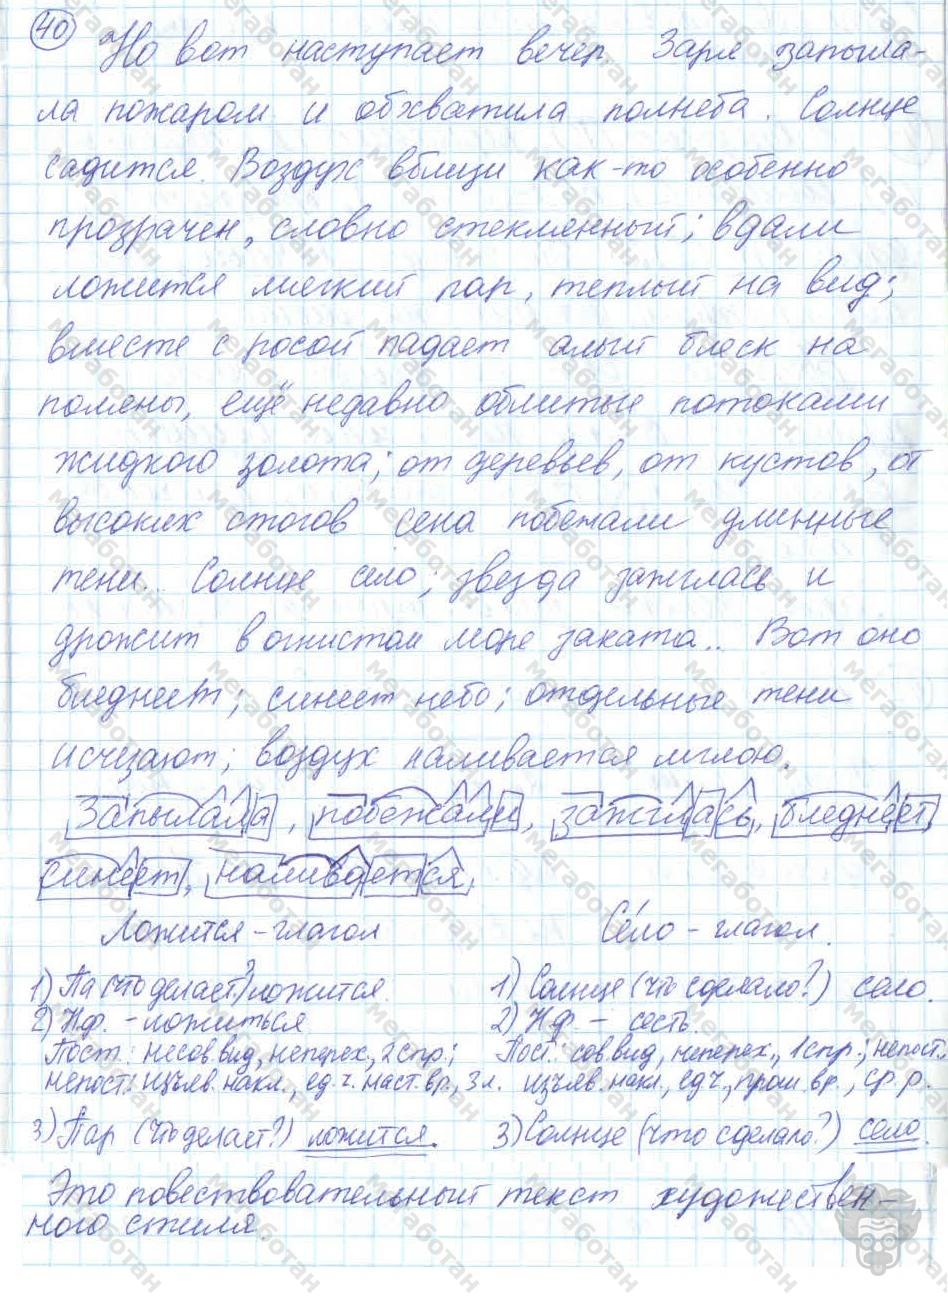 40
Но вот наступает вечер. Заря запыла-
ла пожаром и обхватила полнеба. Солнце
садится. Воздух вблизи как-то особенно
прозрачен, словно стеклянный; вдали
ложится мягкий пар, теплый на вид;
вместе с росой падает алый блеск на
поляны, ещё недавно облитые потоками
жидкого золота; от деревьев, от кустов, от
высоких стогов сена побежали длинные
тени... Солнце село, звезда зажглась и
дрожит в огнистом море заката... Вот оно
бледнеет; синеет небо; отдельные тени
исчезают; воздух наливается мглою.
Запылала, побежали, зажглась, бледнеет,
синеет, наливается.
Ложится - глагол
Се́ло - глагол.
1) Па (что делает?) ложится.
1) Солнце (что сделало?) село.
2) Н.ф. - ложиться
2) Н.ф. - сесть.
Пост.: несов.вид, неперех., 2 спр.;
Пост.: сов.вид, неперех., 1 спр.; непост.:
непост.: изъяв. накл., ед.ч. наст.вр., 3 л.
изъяв. накл., ед.ч., прош.вр., ср.р.
3) Пар (что делает?) ложится.
3) Солнце (что сделало?) село.
Это повествовательный текст художествен-
ного стиля.
мегаботан